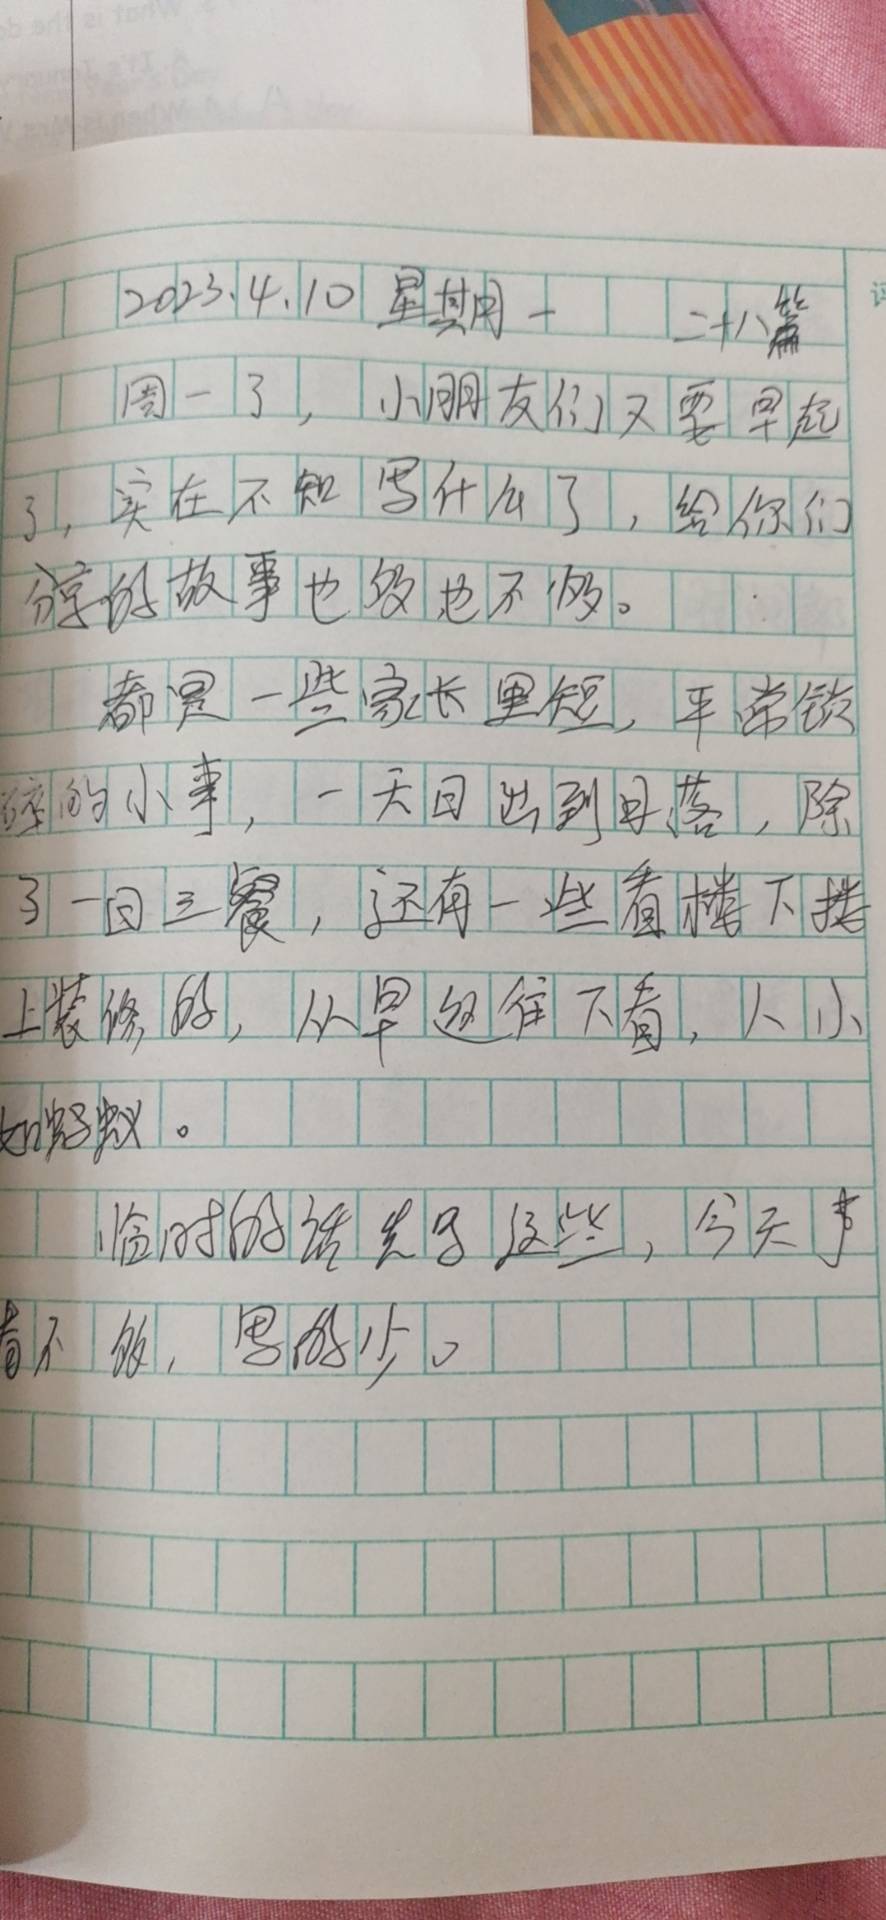 2023.4.10 星期一 二十八篇
周一了，小朋友们又要早起
了，实在不知写什么了，给你们
分享的故事也够也不够。
都是一些家长里短，平常锁
碎的小事，一天日出到日落，除
了一日三餐，还有一些看楼下楼
上装修的，从早这往下看，人小
如蚂蚁。
临时的话先写这些，今天事
看不够，写的少。